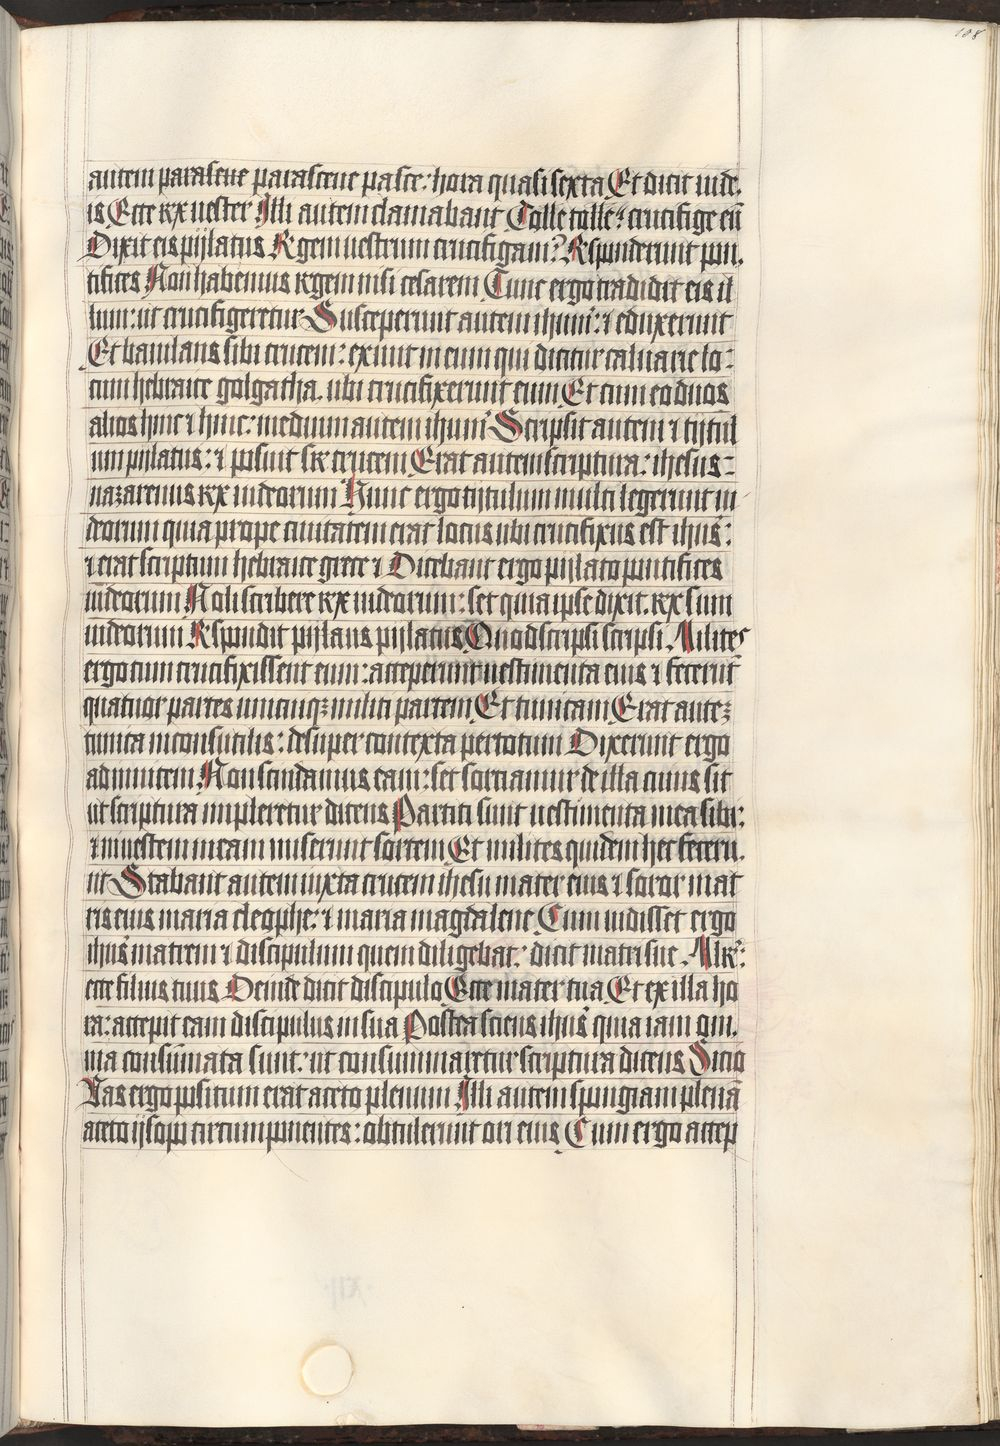 108
autem parascene parascene pasce: hora quasi sexta Et dicit iude,
is Ecce rex uester Illi autem clamabant Tolle tolle: crucifige eū
Dixit eis pijlatus Regem uestrum crucifigam? Responderunt pon,
tifices Non habemus regem nisi cesarem Tunc ergo tradidit eis il
lum: ut crucifigeretur Susceperunt autem ihum: ⁊ eduxerunt
Et baiulans sibi crucem: exiuit in eum qui dicitur caluarie lo:
cum hebraice golgatha. ubi crucifixerunt eum Et cum eo duos
alios hinc ⁊ hinc: medium autem ihum Scripsit autem ⁊ tijtul
um pijlatus: ⁊ posuit sr crucem Erat autem scriptura: ihesus=
nazarenus rex iudeorum Hunc ergo tijtulum multi legerunt iu
deorum quia prope ciuitatem erat locus ubi crucifixus est ihus:
⁊ erat scriptum hebraice grece ⁊ Dicebant ergo pijlato pontifices
iudeorum Noli scribere rex iudeorum: set quia ipse dixit. rex sum
iudeorum Respondit pijlatus pijlatus Quod scripsi scripsi Milites
ergo cum crucifixissent eum: acceperunt uestimenta eius ⁊ fecerunt
quatuor partes unicuiqꝫ militi partem Et tunicam Erat auteꝫ
tunica inconsutilis: desuper contexta per totum Dixerunt ergo
ad inuicem Non scindamus eam: set sortiamur de illa cuius sit
ut scriptura impleretur dicens Partiti sunt uestimenta mea sibi:
⁊ in uestem meam miserunt sortem Et milites quidem hec feceru,
nt Stabant autem iuxta crucem ihesu mater eius ⁊ soror mat
ris eius maria cleophe: ⁊ maria magdalene Cum uidisset ergo
ihus matrem ⁊ discipulum quem diligebat: dicit matri sue
ecce filius tuus Deinde dicit discipulo Ecce mater tua Et ex illa ho
ra: accepit eam discipulus in sua Postea sciens ihus quia iam om,
nia consūmata sunt: ut consummaretur scriptura dicens Sicio
Vas ergo positum erat aceto plenum Illi autem spongiam plenā
aceto ijsopo circumponentes: obtulerunt ori eius Cum ergo accep